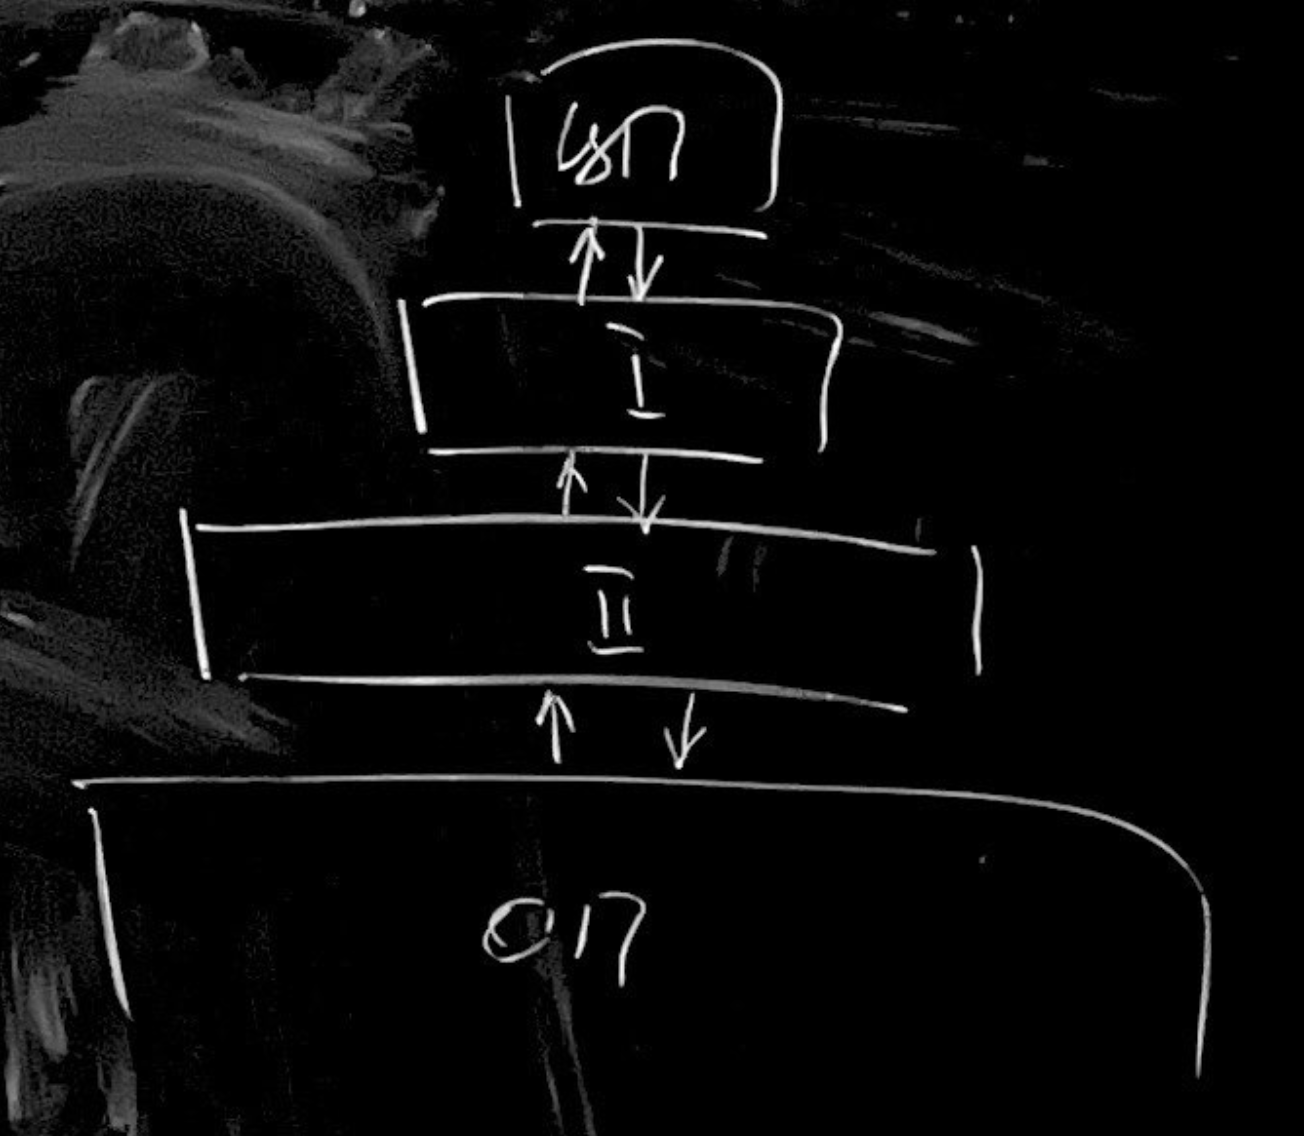 ЦП
I
II
ОП